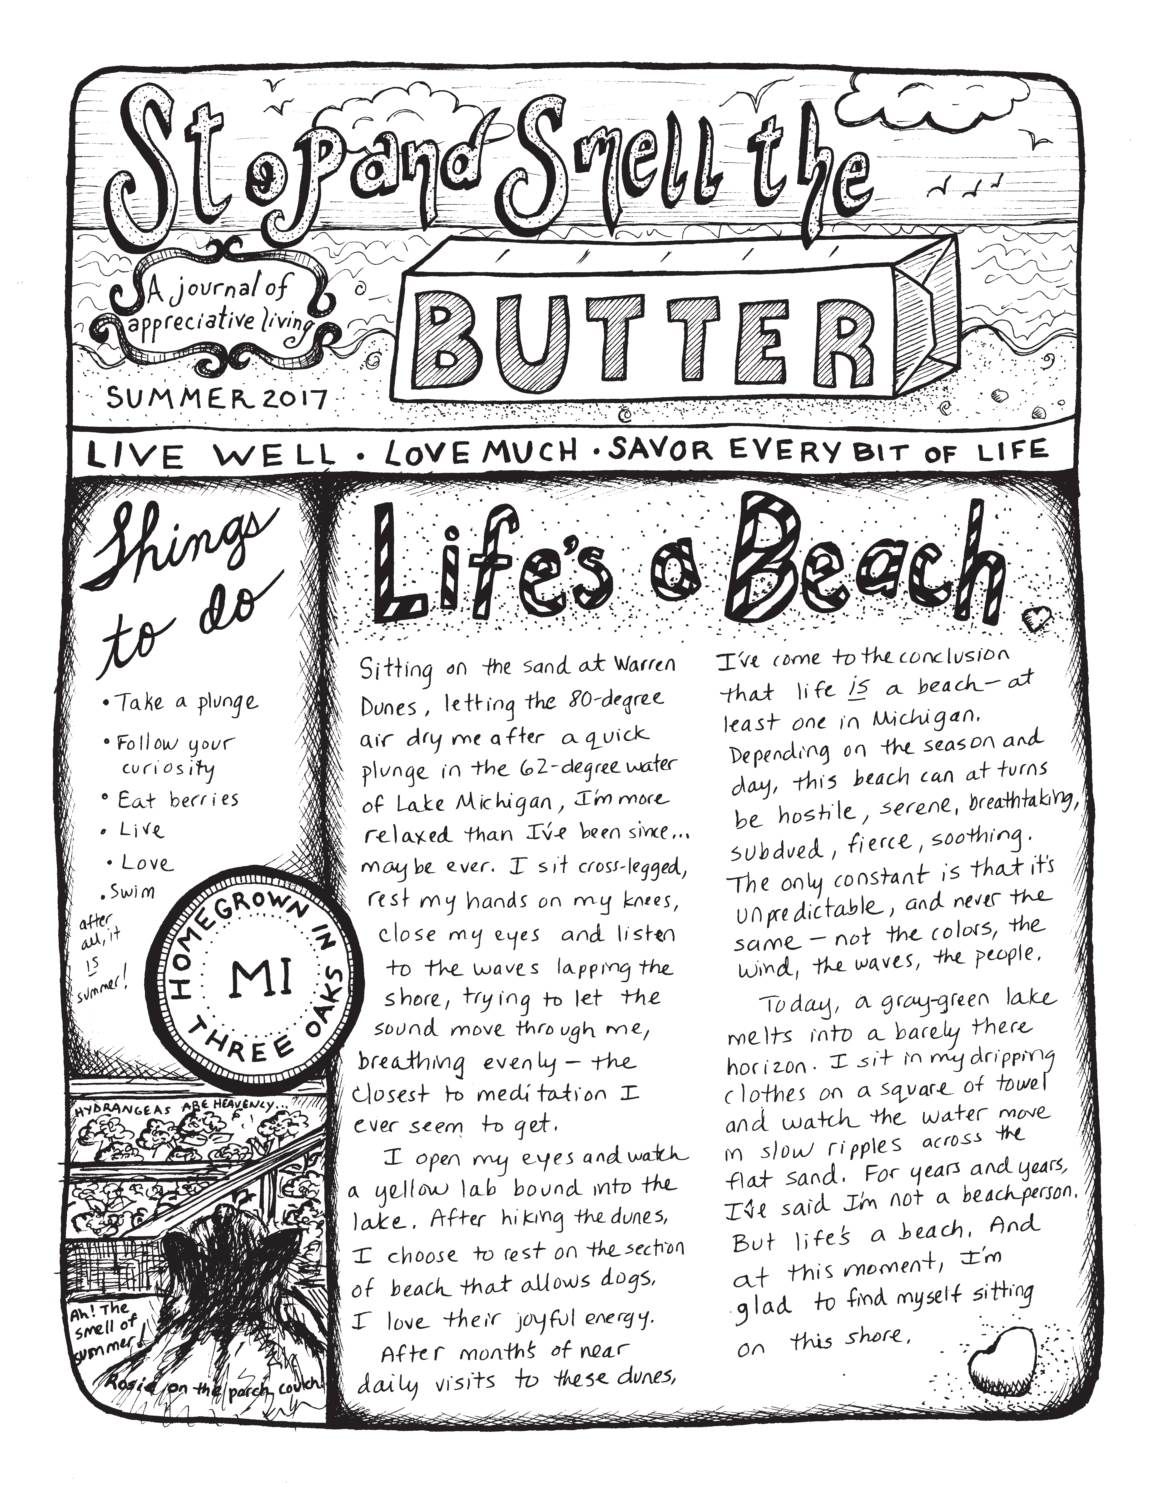 Stop and Smell the
BUTTER
A journal of
appreciative living
SUMMER 2017
LIVE WELL · LOVE MUCH · SAVOR EVERY BIT OF LIFE
Things
to do
• Take a plunge
• Follow your
curiosity
• Eat berries
• Live
• Love
• Swim
after
all, it
is
summer!
HOMEGROWN IN
MI
THREE OAKS
HYDRANGEAS ARE HEAVENLY...
Ah! The
smell of
summer!
Rosie on the porch couch
Life's a Beach
Sitting on the sand at Warren
Dunes, letting the 80-degree
air dry me after a quick
plunge in the 62-degree water
of Lake Michigan, I'm more
relaxed than I've been since...
maybe ever. I sit cross-legged,
rest my hands on my knees,
close my eyes and listen
to the waves lapping the
shore, trying to let the
sound move through me,
breathing evenly — the
closest to meditation I
ever seem to get.
I open my eyes and watch
a yellow lab bound into the
lake. After hiking the dunes,
I choose to rest on the section
of beach that allows dogs.
I love their joyful energy.
After months of near
daily visits to these dunes,
I've come to the conclusion
that life is a beach — at
least one in Michigan.
Depending on the season and
day, this beach can at turns
be hostile, serene, breathtaking,
subdued, fierce, soothing.
The only constant is that it's
unpredictable, and never the
same — not the colors, the
wind, the waves, the people.
Today, a gray-green lake
melts into a barely there
horizon. I sit in my dripping
clothes on a square of towel
and watch the water move
in slow ripples across the
flat sand. For years and years,
I've said I'm not a beach person.
But life's a beach. And
at this moment, I'm
glad to find myself sitting
on this shore.